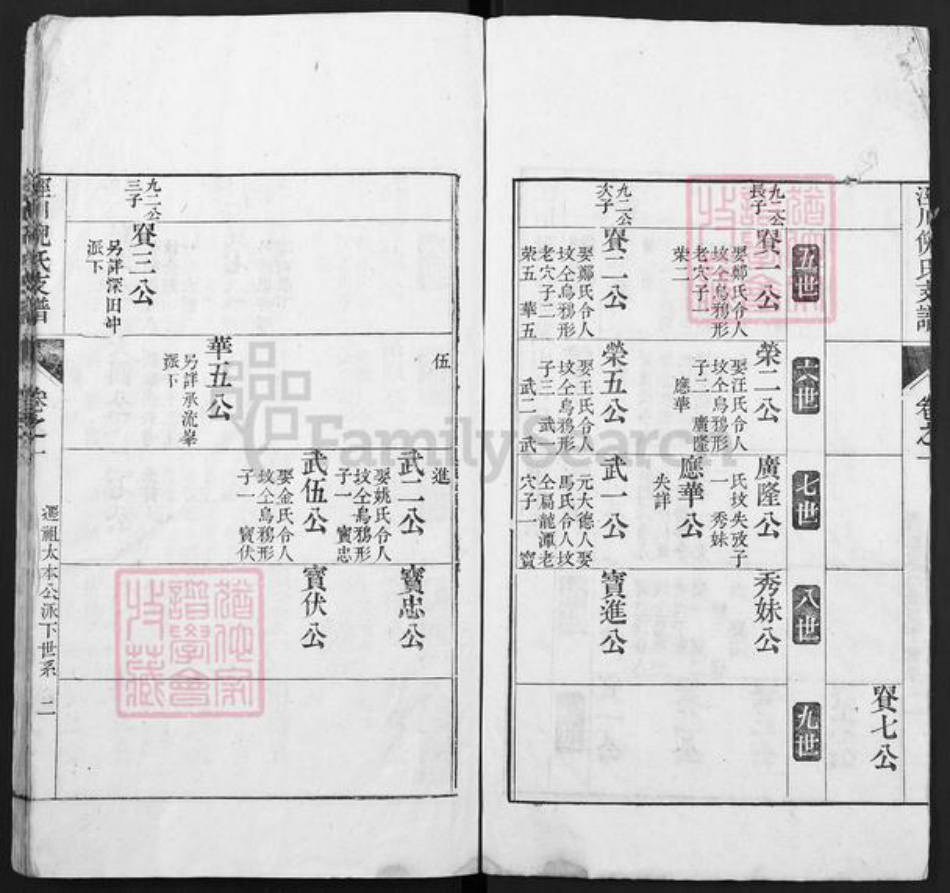 涇川倪氏支譜
卷之一
賽七公
五世
六世
七世
八世
九世
九二公
長子
賽一公
娶鄭氏令人
坟仝烏鴉形
老穴子一
榮二
榮二公
娶汪氏令人
坟仝烏鴉形
子二 廣隆
應華
廣隆公
氏坟失攷子
一 秀妹
應華公
失詳
秀妹公
九二公
次子
賽二公
娶鄭氏令人
坟仝烏鴉形
老穴子二
榮五 華五
榮五公
娶王氏令人
坟仝烏鴉形
子三 武一
武二 武
伍
武一公
元大德人娶
馬氏令人坟
仝扁龍潭老
穴子一 寶
進
寶進公
武二公
娶姚氏令人
坟仝烏鴉形
子一 寶忠
寶忠公
武伍公
娶金氏令人
坟仝烏鴉形
子一 寶伏
寶伏公
華五公
另詳承流峯
派下
九二公
三子
賽三公
另詳深田冲
派下
涇川倪氏支譜
卷之一
遷祖太本公派下世系 二
FamilySearch